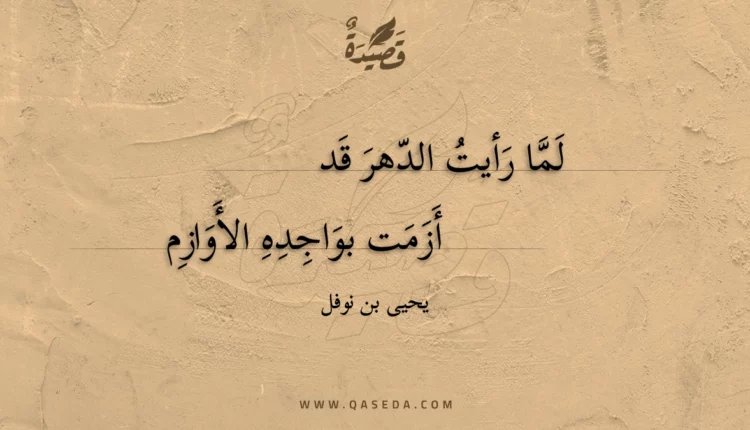 قَصِيدَةٌ
لَمَّا رَأيتُ الدّهرَ قَد
أَزَمَت بوَاجِدِهِ الأَوَازِمِ
يحيى بن نوفل
WWW.QASEDA.COM